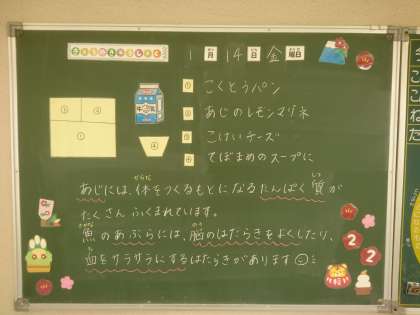 きょうのきゅうしょく
1月14日金曜日
① こくとうパン
② あじのレモンマリネ
③ こけいチーズ
④ てぼまめのスープに
③ ②
①
④
牛乳
あじには、体をつくるもとになるたんぱく質が
たくさんふくまれています。
魚のあぶらには、脳のはたらきをよくしたり、
血をサラサラにするはたらきがあります
2
2